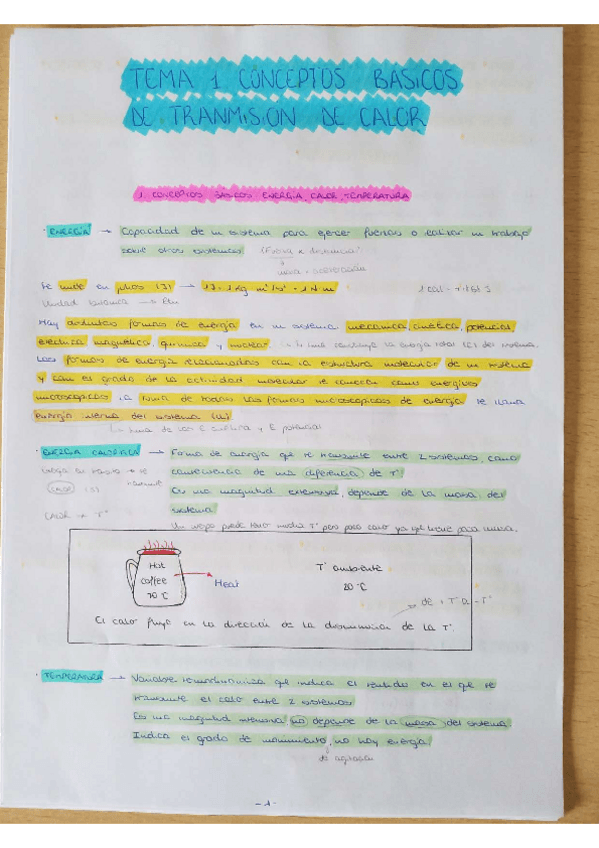 TEMA 1 CONCEPTOS BASICOS
DE TRANMISION DE CALOR
1. CONCEPTOS BASICOS ENERGIA CALOR TEMPERATURA
· ENERGÍA → Capacidad de un sistema para ejercer fuerzas o realizar un trabajo
sobre otros sistemas (Fuerza x distancia)
masa · aceleración
Se mide en julios (J) → 1J = 1 kg m²/s² = 1 N m
Unidad británica → Btu
Hay distintas formas de energía en un sistema mecanica, cinética, potencial,
electrica magnética, quimica y nuclear. constituye la energia total (E) del sistema.
Las formas de energía relacionadas con la estructura molecular de un sistema
y con el grado de la actividad molecular se conocen como energias
microscopicas. La suma de todas las formas microscopicas de energía se llama
energía interna del sistema (u).
la suma de las E cinética y E potencial
· ENERGIA CALORIFICA → Forma de energía que se transmite entre 2 sistemas, como
energia en transito → se transmite
consecuencia de una diferencia de Tª
CALOR (J)
Es una magnitud extensiva, depende de la masa del
sistema
CALOR ≠ Tª
Un mismo puede tener mucha Tª pero poco calor ya que tiene poca masa.
Hot
coffee
70 °C
Heat
Tª ambiente
20 °C
de + Tª a - Tª
El calor fluye en la dirección de la disminución de la Tª.
· TEMPERATURA → Variable termodinámica que indica el sentido en el que se
transmite el calor entre 2 sistemas
Es una magnitud intensiva, no depende de la masa del sistema
Indica el grado de movimiento, no hay energía
de agitación
- 1 -